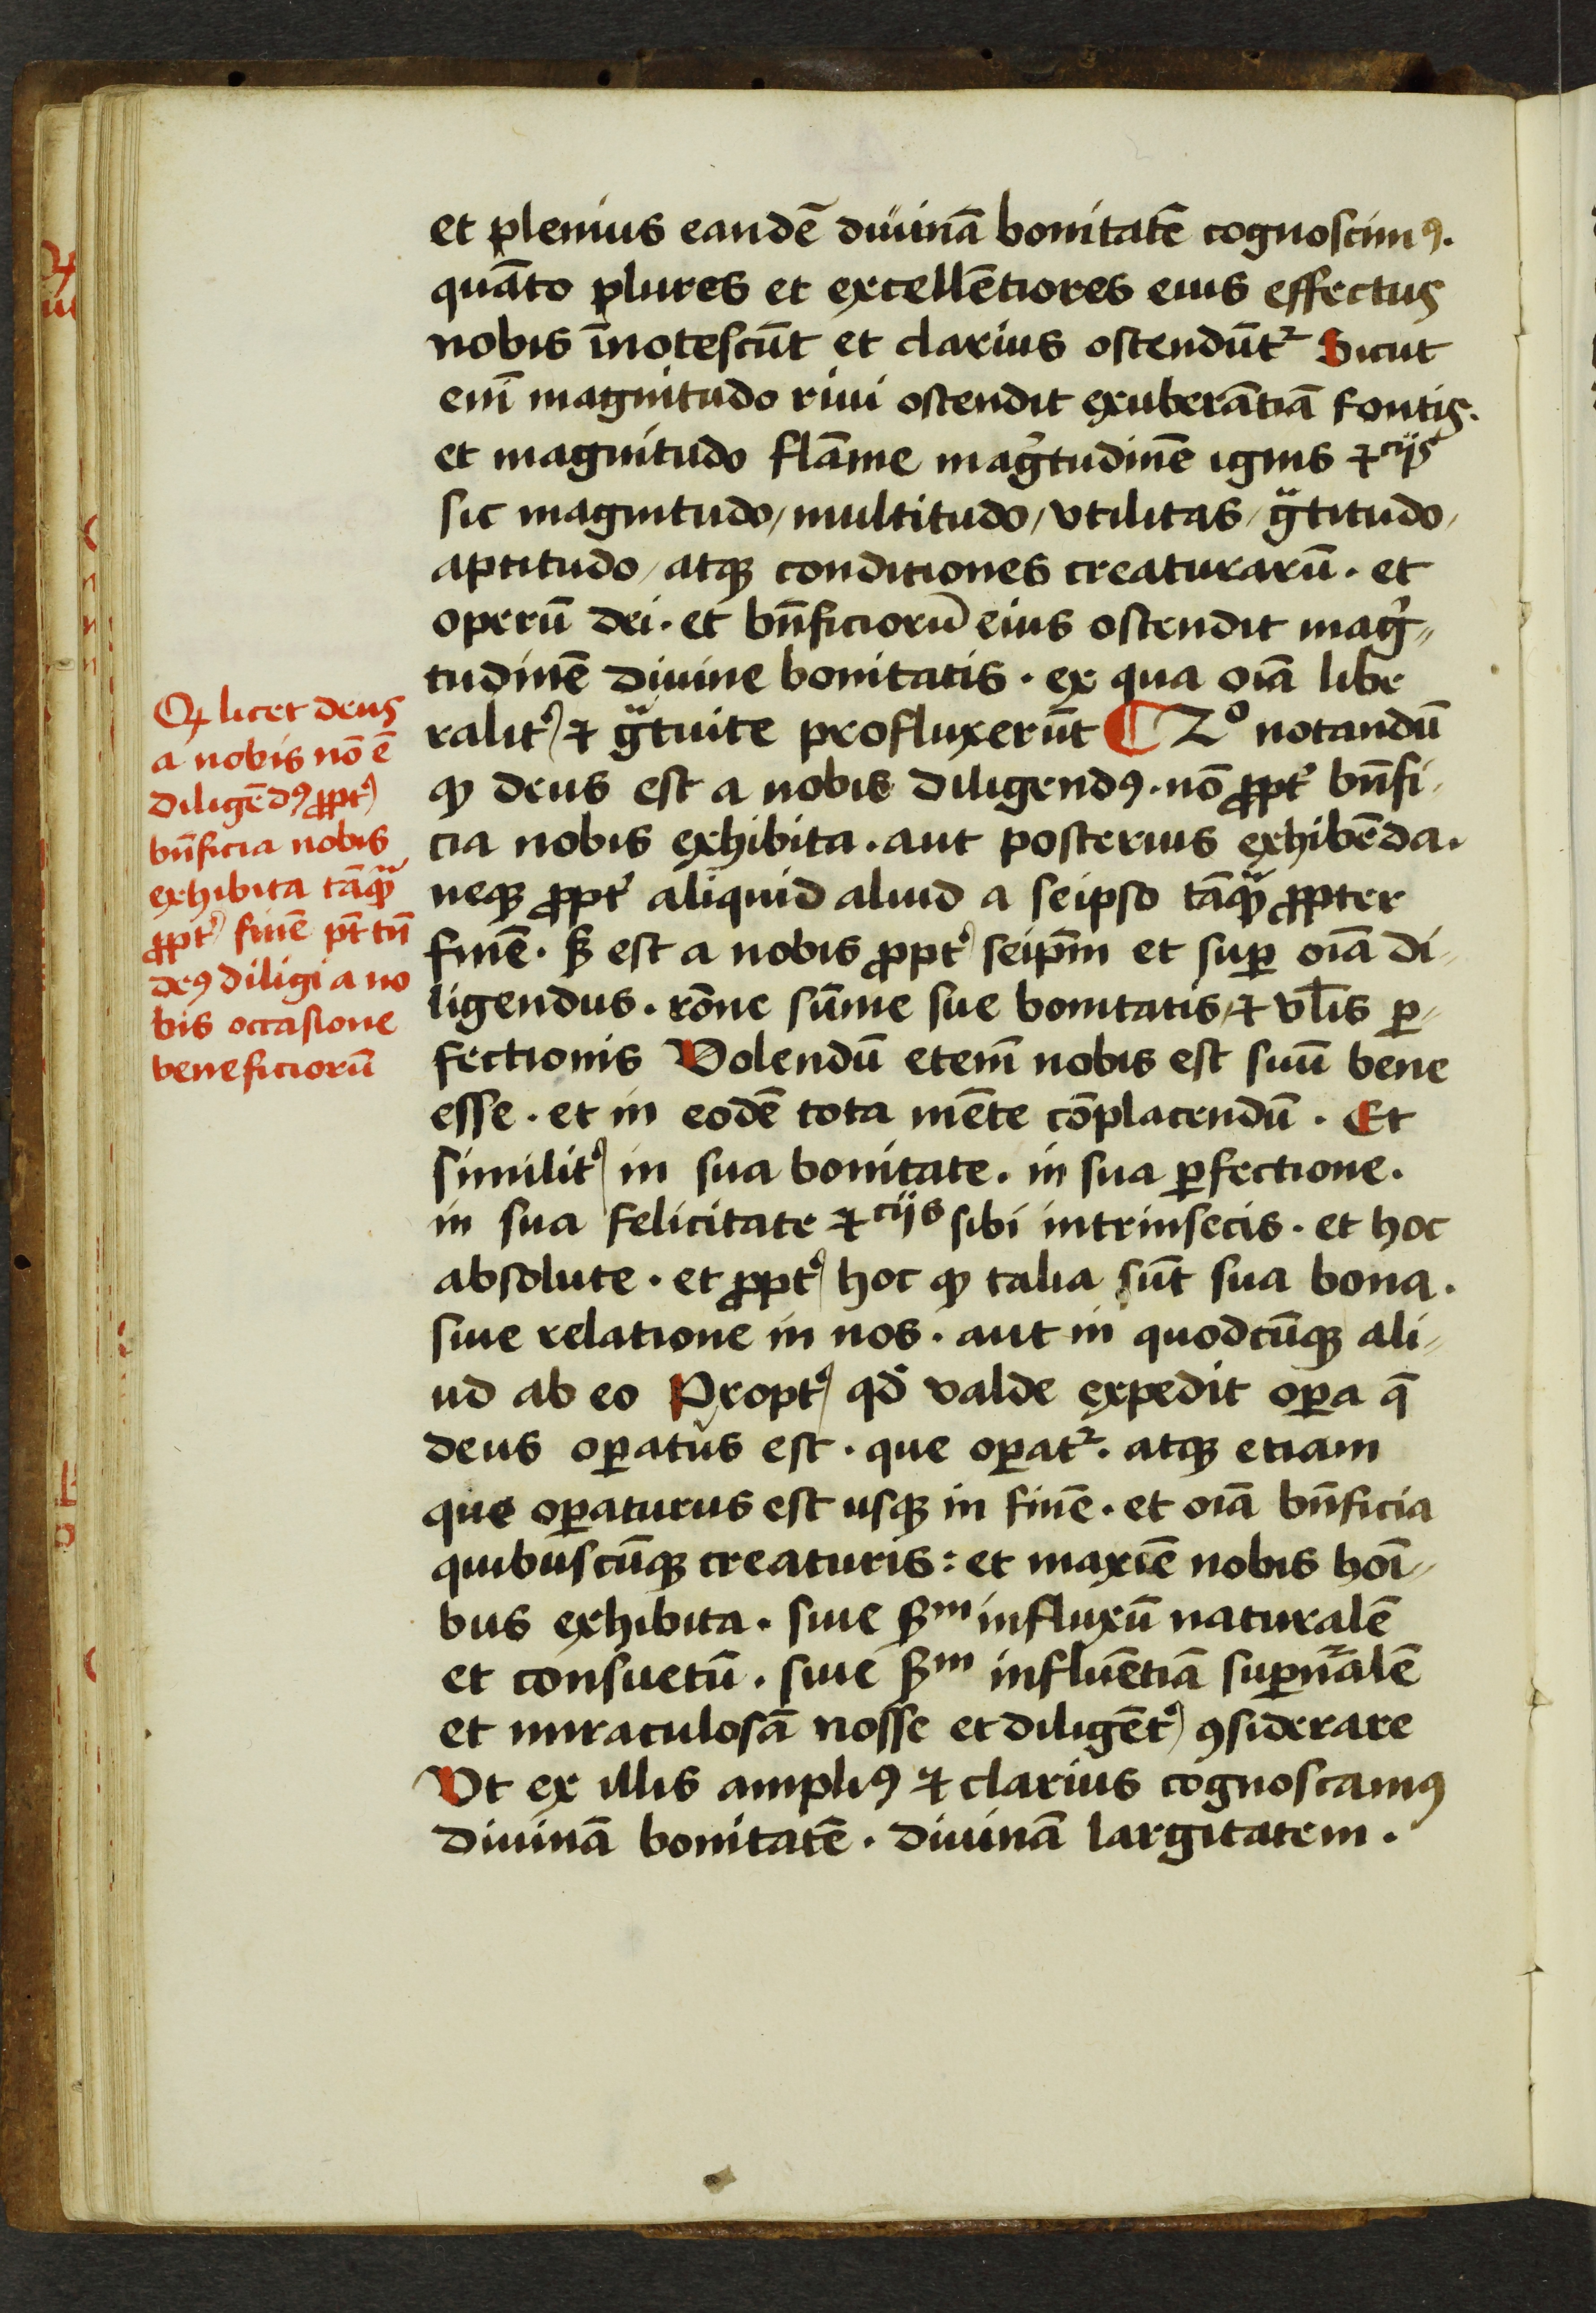 et plenius eandē diuinā bonitatē cognoscimꝰ.
quāto plures et excellētiores eius effectus
nobis īnotescūt et clarius ostendūtᷣ Sicut
enī magnitudo riui ostendit exuberātiā fontis.
et magnitudo flāme magͥtudinē ignis ⁊ciis
sic magnitudo / multitudo / vtilitas / gᷓtitudo /
aptitudo / atqꝫ conditiones creaturarū . et
operū dei . et bn̄ficiorū eius ostendit magͥ-
tudinē diuine bonitatis . ex qua oīa libe
ralitꝰ ⁊ gᷓtuite profluxerūt ¶ 2º notandū
ꝙ deus est a nobis diligendꝰ . nō ꝓptꝰ bn̄fi-
cia nobis exhibita . aut posterius exhibēda .
neqꝫ ꝓptꝰ aliquid aliud a seipso tāqᷓ ꝓpter
finē . ß est a nobis ꝓptꝰ seip̄m et suꝑ oīa di-
ligendus . rōne sūme sue bonitatis / ⁊ vl̄is ꝑ-
fectionis Volendū etenī nobis est suū bene
esse . et in eodē tota mēte cōplacendū . Et
similitꝰ in sua bonitate . in sua ꝑfectione .
in sua felicitate ⁊ciis sibi intrinsecis . et hoc
absolute . et ꝓptꝰ hoc ꝙ talia sūt sua bona .
siue relatione in nos . aut in quodcūqꝫ ali-
ud ab eo Proptꝰ qd̄ valde expedit oꝑa q̄
deus oꝑatus est . que oꝑatᷣ . atqꝫ etiam
que oꝑaturus est usqꝫ in finē . et oīa bn̄ficia
quibuscūqꝫ creaturis : et maxīe nobis hoī-
bus exhibita . siue ßᵐ influxū naturalē
et consuetū . siue ßᵐ influētiā suꝑnᷓalē
et miraculosā nosse et diligētꝰ ꝯsiderare
Vt ex illis ampliꝰ ⁊ clarius cognoscamꝰ
diuinā bonitatē . diuinā largitatem .
Qꝙ licet deus
a nobis nō ē
diligēdꝰ ꝓptꝰ
bn̄ficia nobis
exhibita tāqᷓ
ꝓptꝰ finē pt̄ tn̄
deꝰ diligi a no
bis occasione
beneficiorū